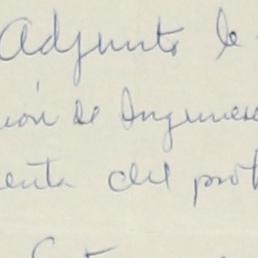 Adjunto le
ión de Ingenier
enta del prot